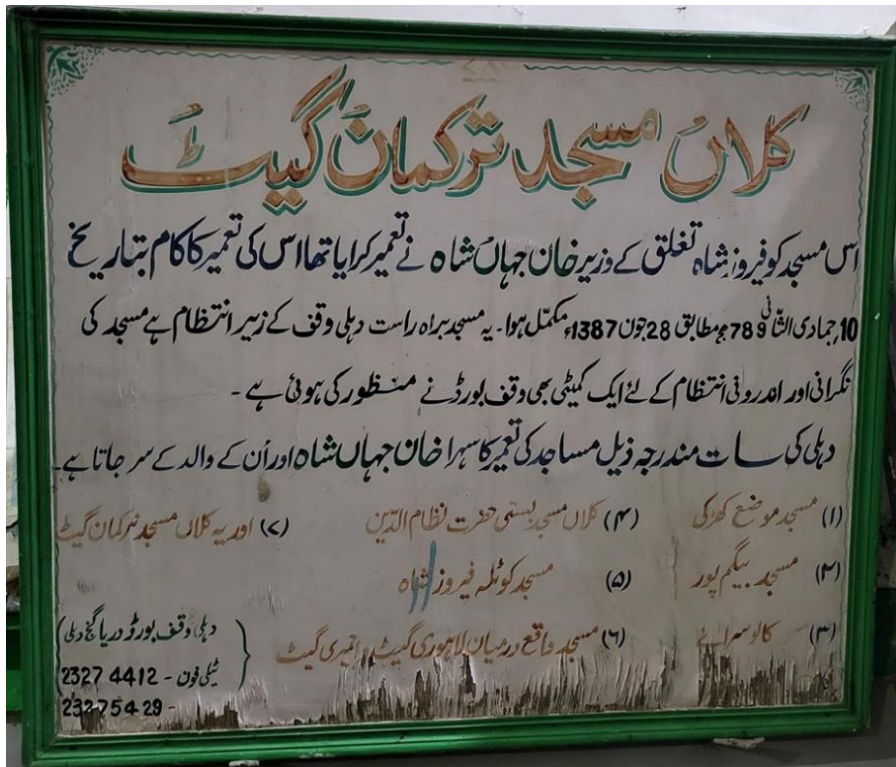 کلاں مسجد ترکمان گیٹ
اس مسجد کو فیروز شاہ تغلق کے وزیر خان جہاں شاہ نے تعمیر کرایا تھا اس کی تعمیر کا کام بتاریخ
10, جمادی الثانی 789ھ مطابق 28 جون 1387ء مکمّل ہوا۔ یہ مسجد براہ راست دہلی وقف کے زیر انتظام ہے مسجد کی
نگرانی اور اندرونی انتظام کے لئے ایک کمیٹی بھی وقف بورڈ نے منظور کی ہوئی ہے ۔
دہلی کی سات مندرجہ ذیل مساجد کی تعمیر کا سہرا خان جہاں شاہ اور اُن کے والد کے سر جاتا ہے۔
(۱) مسجد موضع کھڑکی (۴) کلاں مسجد بستی حضرت نظام الدّین (۷) اور یہ کلاں مسجد ترکمان گیٹ
(۲) مسجد بیگم پور (۵) مسجد کوٹلہ فیروز شاہ
(۳) کالو سرائے (۶) مسجد واقع درمیان لاہوری گیٹ و اجمیری گیٹ
دہلی وقف بورڈ دریا گنج دہلی
ٹیلی فون - 2327 4412
23275429 -